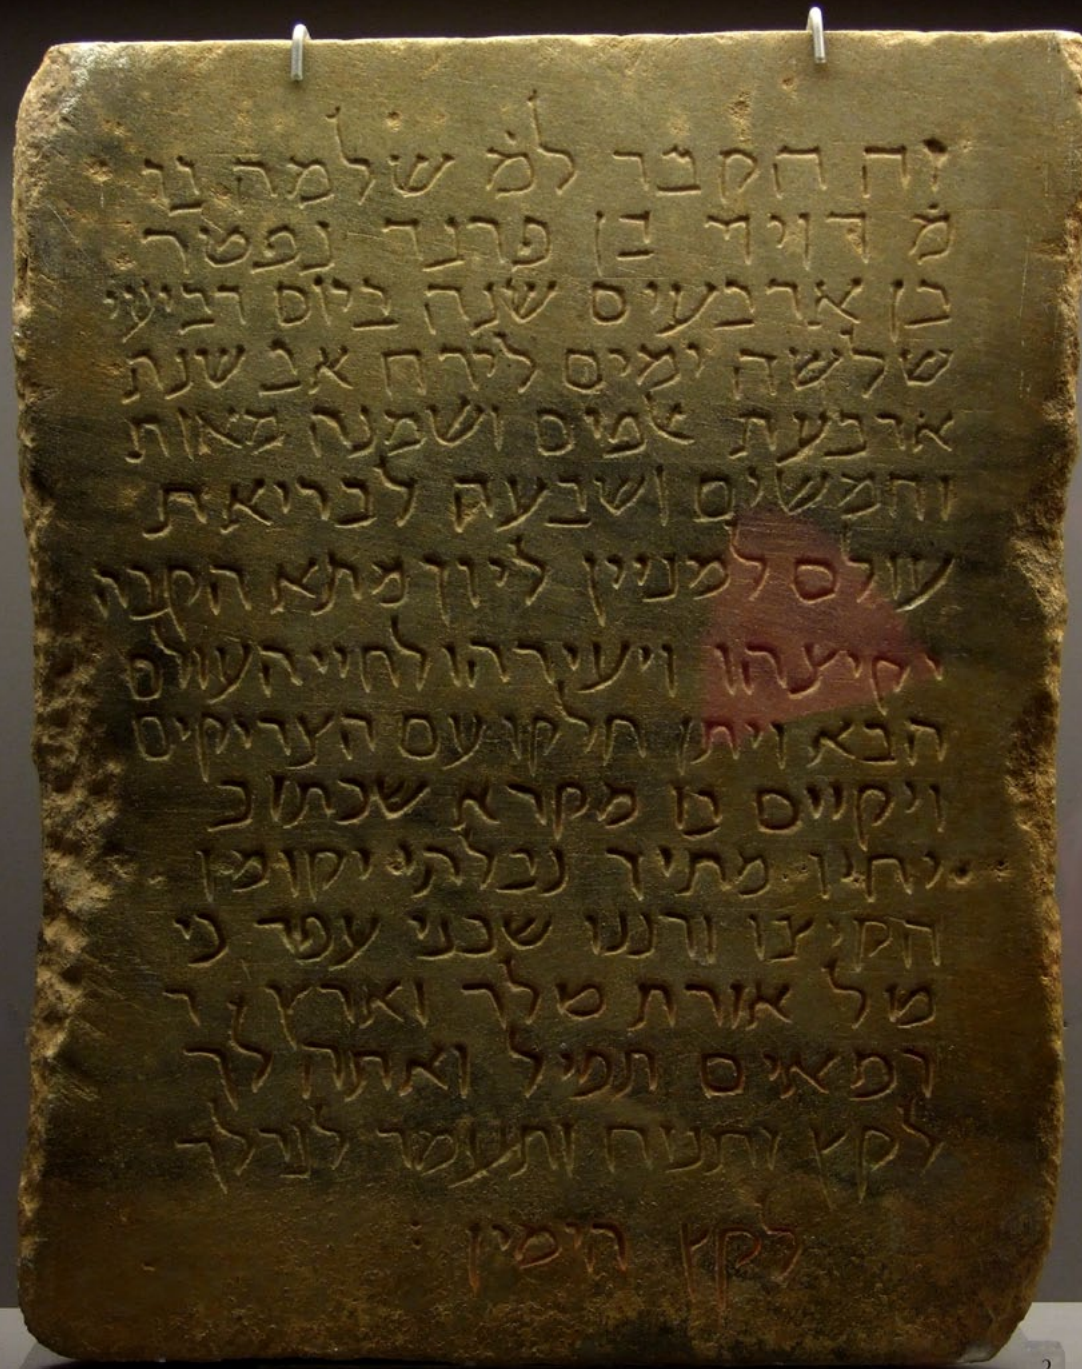 זה הקבר למ שלמה בן
מ דויד בן פרנד נפטר
בן ארבעים שנה ביום רביעי
שלשה ימים לירח אב שנת
ארבעת אלפים ושמנה מאות
וחמשים ושבעה לבריאת
עולם למניין ליון מתא הקבה
יקיצהו ויעירהו לחיי העולם
הבא ויתן חלקו עם הצדיקים
ויקיים בו מקרא שכתוב
יחיו מתיך נבלתי יקומון
הקיצו ורננו שכני עפר כי
טל אורת טלך וארץ
רפאים תפיל ואתה לך
לקץ ותנוח ותעמד לגרלך
לקץ הימין